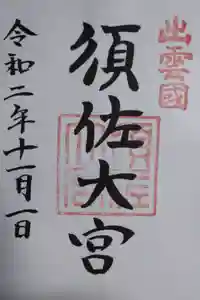 出雲國
須佐大宮
令和二年十一月一日